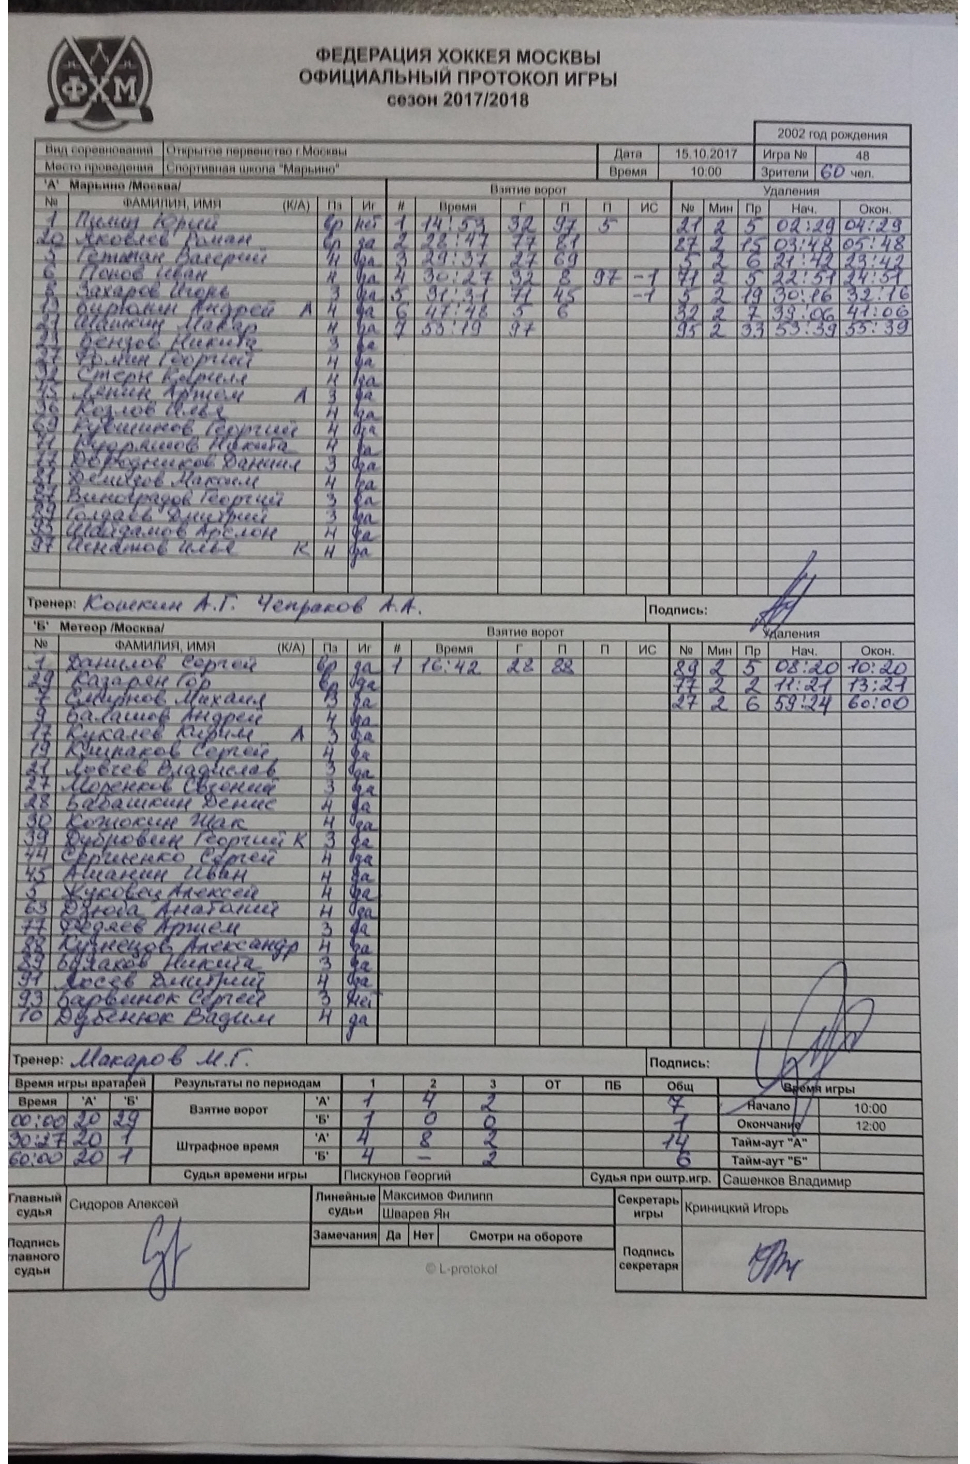 ФХМ
ФЕДЕРАЦИЯ ХОККЕЯ МОСКВЫ
ОФИЦИАЛЬНЫЙ ПРОТОКОЛ ИГРЫ
сезон 2017/2018
2002 год рождения
Вид соревнований Открытое первенство г.Москвы Дата 15.10.2017 Игра № 48
Место проведения Спортивная школа "Марьино" Время 10:00 Зрители 60 чел.
'А' Марьино /Москва/ Взятие ворот Удаления
№ ФАМИЛИЯ, ИМЯ (К/А) Пз Иг # Время Г П П ИС № Мин Пр Нач. Окон.
1 Юрий вр нет 1 14:53 32 97 5 21 2 5 02:29 04:29
20 Яковлев Роман вр да 2 28:47 77 81 87 2 15 03:48 05:48
5 Валерий да 3 29:37 27 69 5 2 6 21:42 23:42
6 Попов Иван 4 да 4 30:27 32 8 97 -1 71 2 5 22:51 24:51
8 Захаров Игорь 3 да 5 31:31 71 45 -1 5 2 19 30:16 32:16
13 Андрей А 4 да 6 47:48 5 6 32 2 7 39:06 41:06
21 Шашкин Макар 4 да 7 53:19 97 95 2 33 53:39 55:39
Никита 3 да
27 Фомин Георгий 4 да
32 Стерн Кирилл 4 да
45 Ленин Артём А 3 да
Козлов Илья 4 да
69 Кувшинов Георгий 4 да
71 Никита 4 да
77 Даниил 3 да
81 Демидов Максим 4 да
87 Виноградов Георгий 3 да
89 Голдаев Дмитрий 3 да
95 Шайдамов Арслон 4 да
97 Игнатов Илья К 4 да
Тренер: Кошкин А.Г. Чепраков А.А. Подпись:
'Б' Метеор /Москва/ Взятие ворот Удаления
№ ФАМИЛИЯ, ИМЯ (К/А) Пз Иг # Время Г П П ИС № Мин Пр Нач. Окон.
1 Данилов Сергей вр да 1 16:42 28 88 89 2 5 08:20 10:20
29 Казарян Гор вр да 77 2 2 11:21 13:21
7 Смирнов Михаил 3 да 27 2 6 59:24 60:00
9 Балашов Андрей 4 да
17 Кукалев Кирим А 3 да
19 Кирпаков Сергей 4 да
21 Ловчев Владислав 3 да
27 Моренков Евгений 3 да
28 Бабашкин Денис 4 да
30 Кожокин Жак 4 да
39 Дубровин Георгий К 3 да
44 Сергиенко Сергей 4 да
45 Ашанин Иван 4 да
5 Жуковец Алексей 4 да
63 Дзюба Анатолий 4 да
77 Федяев Артём 3 да
88 Кузнецов Александр 4 да
89 Никита 3 да
91 Лосев Дмитрий 4 да
93 Барвинок Сергей 3 нет
10 Дубенюк Вадим 4 да
Тренер: Макаров М.Г. Подпись:
Время игры вратарей Результаты по периодам 1 2 3 ОТ ПБ Общ Время игры
Время 'А' 'Б' Взятие ворот 'А' 1 4 2 7 Начало 10:00
00:00 20 29 'Б' 1 0 0 1 Окончание 12:00
30:27 20 1 Штрафное время 'А' 4 8 2 14 Тайм-аут "А"
60:00 20 1 'Б' 4 – 2 6 Тайм-аут "Б"
Судья времени игры Пискунов Георгий Судья при оштр.игр. Сашенков Владимир
Главный судья Сидоров Алексей Линейные судьи Максимов Филипп Секретарь игры Криницкий Игорь
Шварев Ян
Подпись главного судьи Замечания Да Нет Смотри на обороте Подпись секретаря
© L-protokol